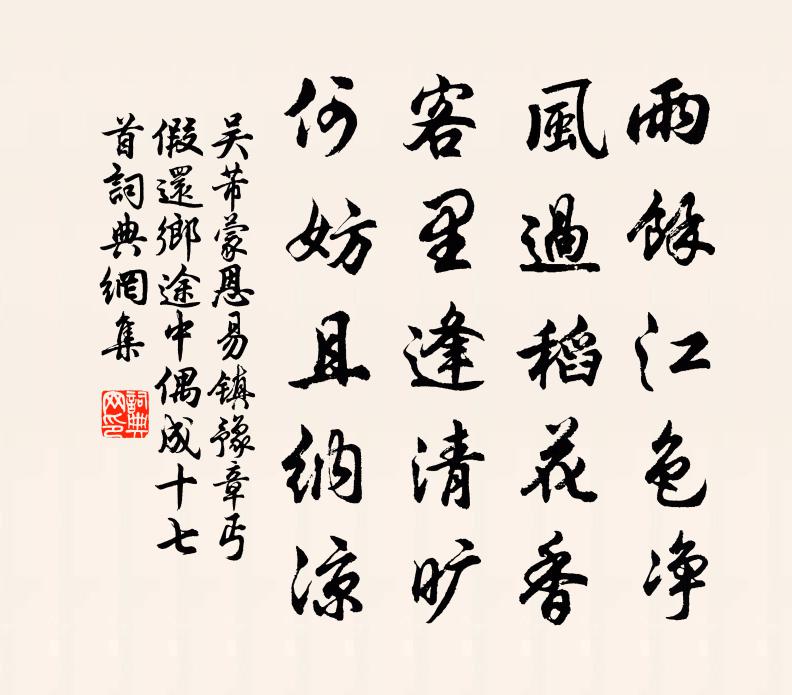 雨餘江色净
風過稻花香
客里逢清旷
何妨且纳凉
吴芾蒙恩易镇豫章丐
假還鄉途中偶成十七
首詞典網集
詞典网印